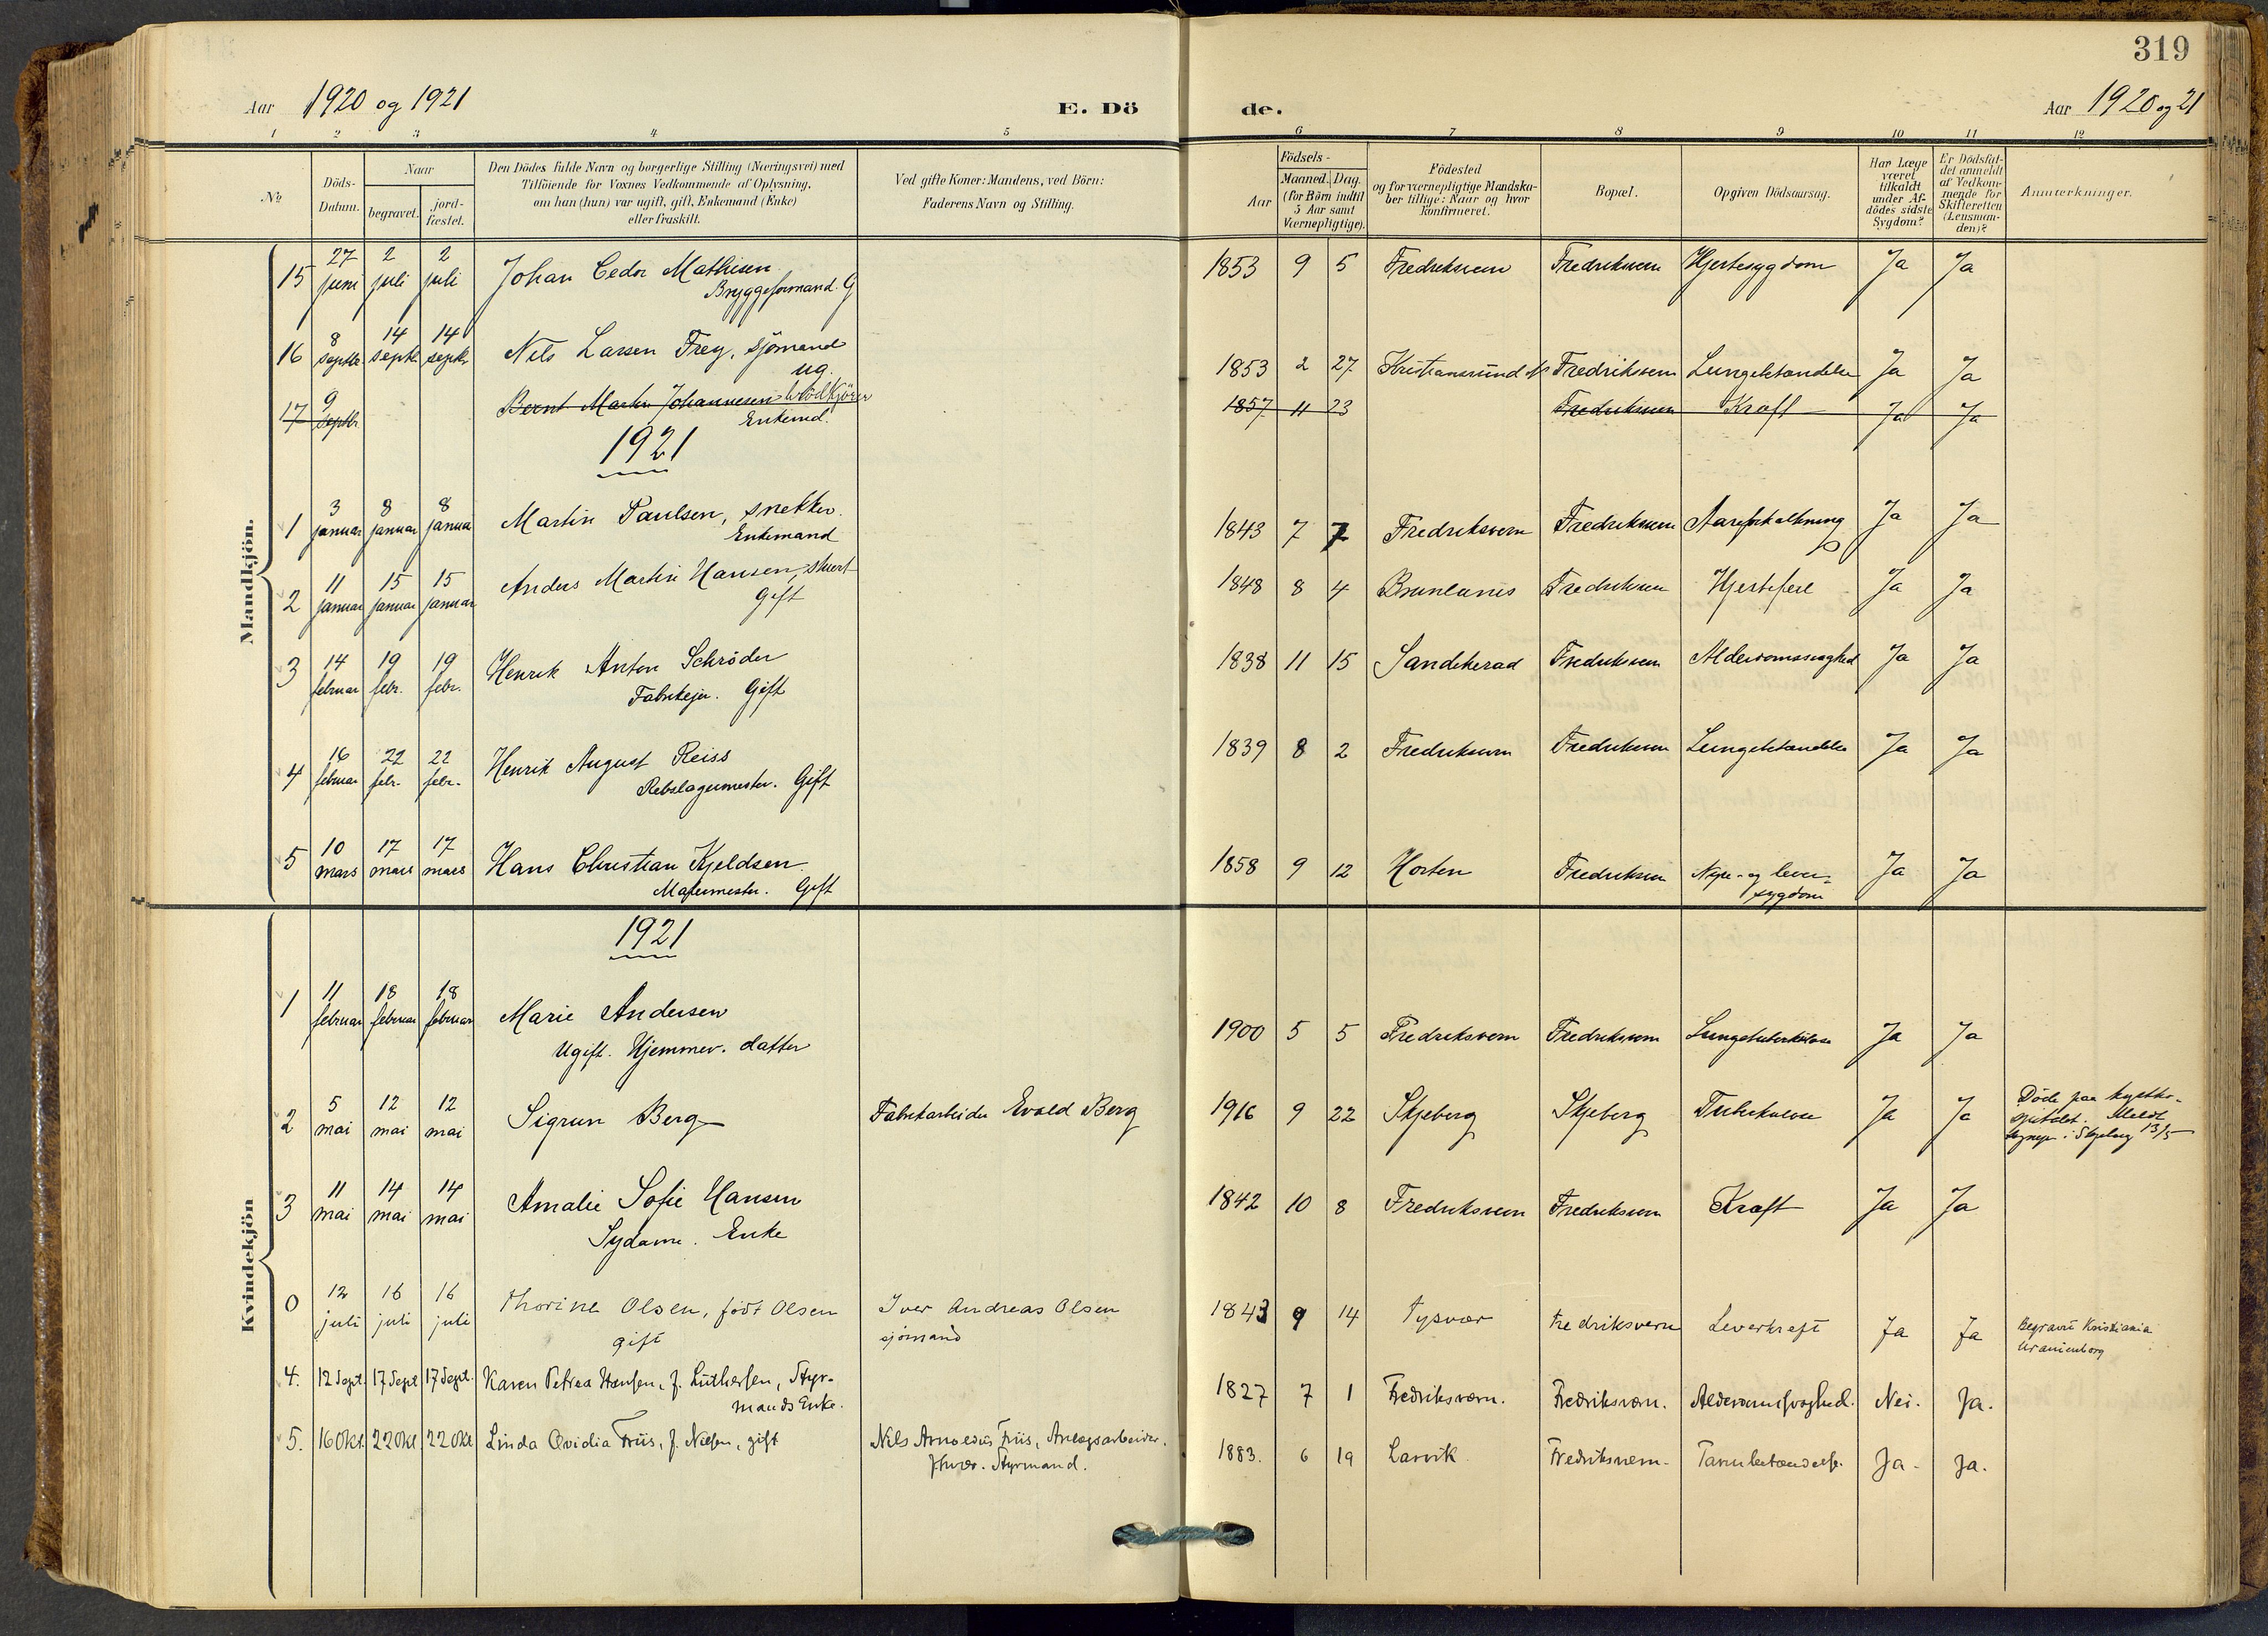 319
Aar 1920 og 1921 E. Dö de. Aar 1920 og 21
1 2 3 4 5 6 7 8 9 10 11 12
№
Döds-Datum.
Naar
begravet.
jord-fæstet.
Den Dödes fulde Navn og borgerlige Stilling (Næringsvei) med
Tilföiende for Voxnes Vedkommende af Oplysning,
om han (hun) var ugift, gift, Enkemand (Enke)
eller fraskilt.
Ved gifte Koner: Mandens, ved Börn:
Faderens Navn og Stilling.
Födsels-
Aar
Maaned. Dag.
(for Börn indtil
5 Aar samt
Værnepligtige).
Födested
og for værnepligtige Mandska-
ber tillige: Naar og hvor
konfirmeret.
Bopæl.
Opgiven Dödsaarsag.
Har Læge
været
tilkaldt
under Af-
dödes sidste
Sygdom?
Er Dödsfal-
det anmeldt
af Vedkom-
mende for
Skifteretten
(Lensman-
den)?
Anmerkninger.
Mandkjön.
15 27 juni 2 juli 2 juli Johan Ceder Mathisen 1853 9 5 Fredriksvern Fredriksvern Hjertesygdom Ja Ja
Bryggeformand. G
16 8 septbr 14 septbr 14 septbr Nils Larsen Frey, Sjömand 1853 2 27 Kristiansund N Fredriksvern Lungebetændelse Ja Ja
ug.
17 9 septbr Bernt Martin Johannesen 1857 11 23 Fredriksvern Kræft Ja Ja
Enkemd.
1921
1 3 januar 8 januar 8 januar Martin Paulsen, snekker. 1843 7 7 Fredriksvern Fredriksvern Aareforkalkning Ja Ja
Enkemand
2 11 januar 15 januar 15 januar Anders Martin Hansen, stuert 1848 8 4 Brunlanes Fredriksvern Hjertefeil Ja Ja
gift
3 14 februar 19 febr. 19 febr. Henrik Anton Schröder 1838 11 15 Sandeherad Fredriksvern Alderdomssvaghed Ja Ja
Fabrikejer. Gift
4 16 februar 22 febr. 22 febr. Henrik August Reiss 1839 8 2 Fredriksvern Fredriksvern Lungebetændelse Ja Ja
Rebslagermester. Gift
5 10 mars 17 mars 17 mars Hans Christian Kjeldsen 1858 9 12 Horten Fredriksvern Nyre- og lever-
Malermester. Gift sygdom Ja Ja
Kvindekjön
1921
1 11 februar 18 februar 18 februar Marie Andersen 1900 5 5 Fredriksvern Fredriksvern Lungetuberkulose Ja Ja
Ugift. Hjemmev. datter
2 5 mai 12 mai 12 mai Sigrun Berg Fabrikarbeider Evald Berg 1916 9 22 Skjeberg Skjeberg Tuberkulose Ja Ja Döde paa kystho-
spitalet. Meldt
sognepr. i Skjeberg 13/5
3 11 mai 14 mai 14 mai Amalie Sofie Hansen 1842 10 8 Fredriksvern Fredriksvern Kræft Ja Ja
Sydame. Enke
0 12 juli 16 juli 16 juli Thorine Olsen, født Olsen Iver Andreas Olsen 1843 9 14 Tysvær Fredriksvern Leverkreft Ja Ja Begravet Kristiania
gift sjömand Uranienborg
4. 12 Sept. 17 Sept 17 Sept. Karen Petrea Hansen, f. Luthersen, Styr- 1827 7 1 Fredriksværn. Fredriksværn. Alderdomssvaghed. Nei. Ja.
mands Enke.
5. 16 Okt. 22 Okt 22 Okt Linda Ovidia Friis, f. Nielsen, gift Nils Arnoldus Friis, Anlægsarbeider, 1883. 6 19 Larvik Fredriksvern. Tarmbetændelse. Ja. Ja.
Styrmand.